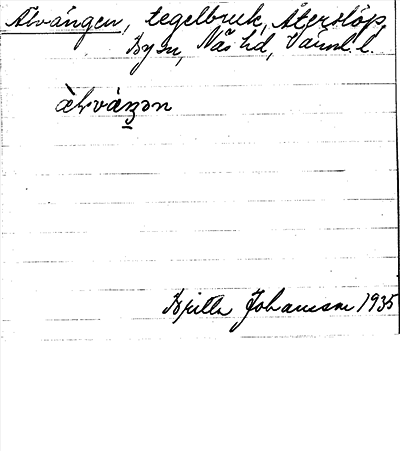 Älvängen, tegelbruk, Återslöp,
By sn, Näs hd, Värml. l.
ä̀lväŋən
Britta Johansson 1935